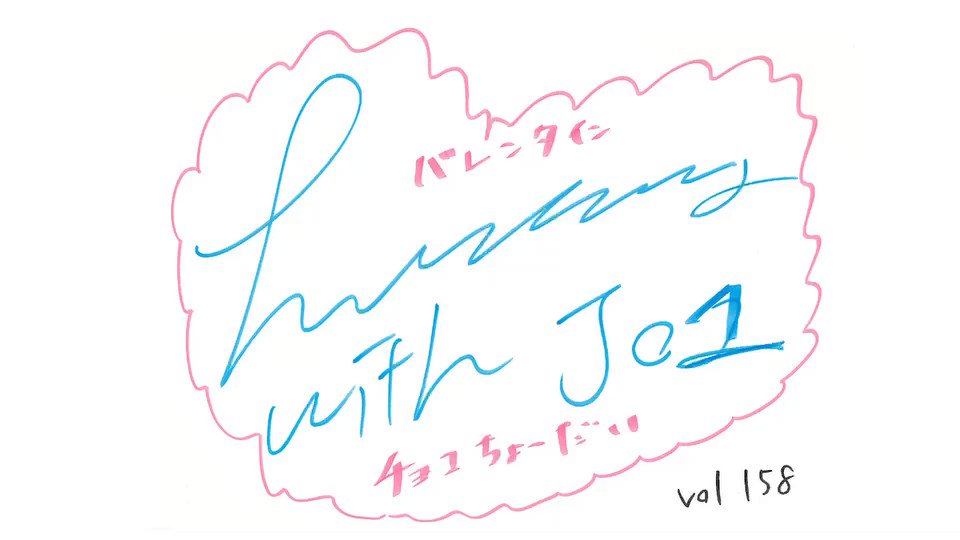 バレンタイン
with Jo1
チョコちょーだい
vol 158